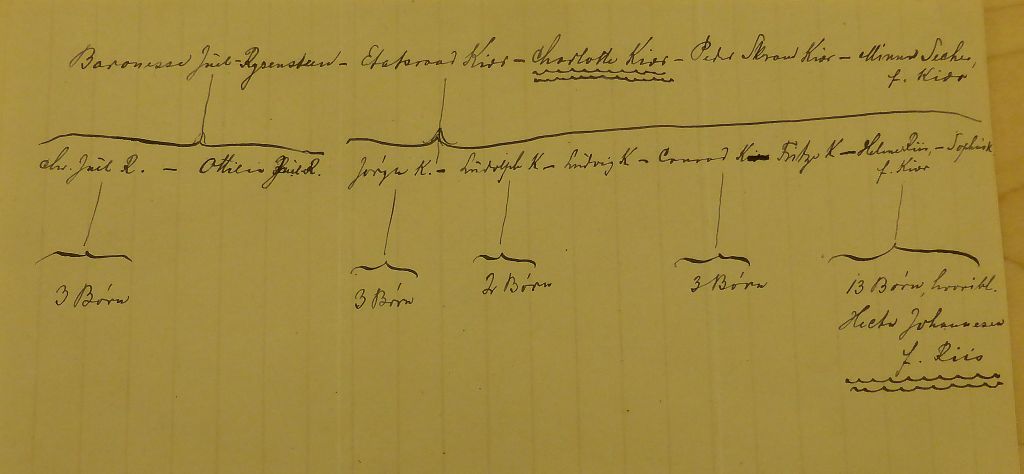 Baronesse Juel-Rysensteen – Etatsraad Kiær – Charlotte Kiær – Peder Skram Kiær – Minna
f. Kiær
Chr. Juel R. – Ottilia Juel R. Jörgen K. – Ludolph K – Ludvig K – Conrad K – Fritze K – Helene Riis, – Sophie K
f. Kiær
3 Börn 3 Börn 2 Börn 3 Börn 13 Börn, hvoribl.
Johannesen
f. Riis